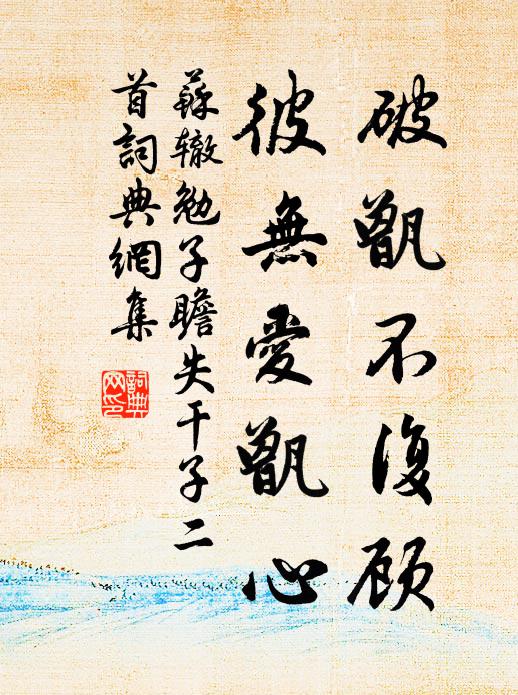 破甑不復顾
彼無愛甑心
蘇辙勉子瞻失干子二
首詞典網集
詞典
网印